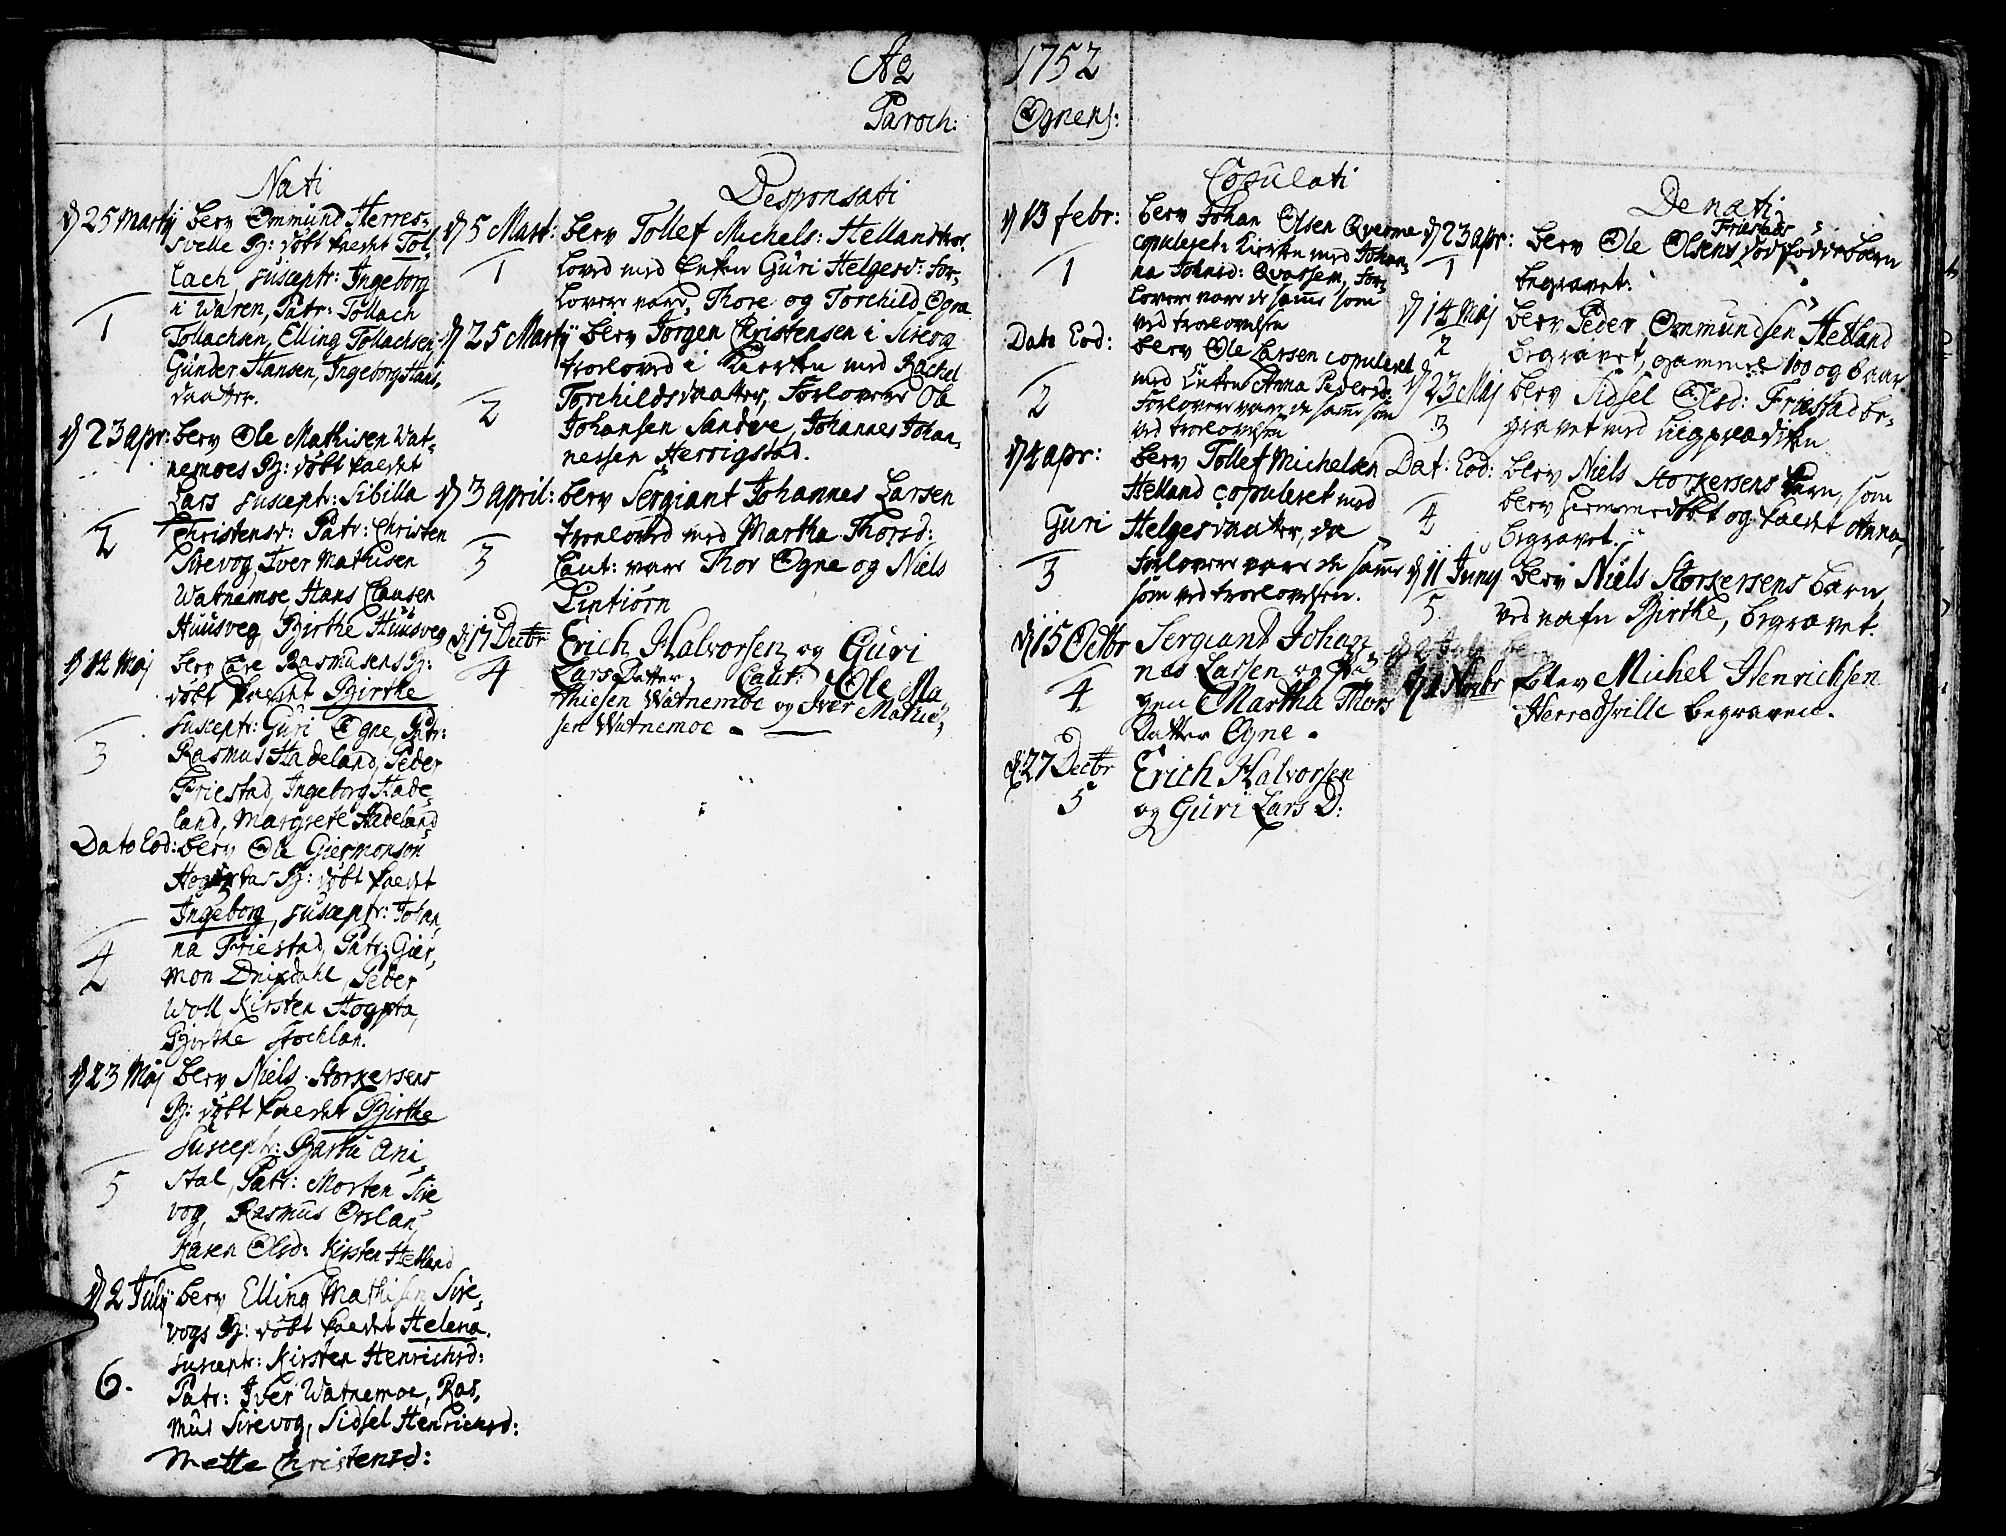 Ao 1752
Paroch: Ognens:
Nati
d 25 Martij blev Ommund Herres-
svelle B: döbt kaldt Tol-
lach, suscept: Ingeborg
i Waren, Patr: Tollach
1
Tollachsen, Elling Tollachsen,
Günder Hansen, Ingeborg Hans,
daatter.
d 23 apr: blev Ole Mathisen Wat-
nemoes B: döbt kaldt
Lars suscept: Sibilla
2
Christensd: Patr: Christen
Sirevog, Iver Mathisen
Watnemoe, Hans Clausen
Huusveg, Birthe Huusveg
d 14 Maj blev Rasmusens B:
döbt kaldt Birthe
suscept: Guri Ogne, Patr:
3
Rasmus Hadeland, Peder
Friestad, Ingeborg Hade,
land, Margrete Hadeland
Dato Eod: blev Ole Giermonson
B: döbt kaldt
Ingeborg, suscept: Johan,
4
na Friestad, Patr: Gier,
mon Dripdahl, Peder
Woll Kirsten Hogsta,
Birthe Stochlan.
d 23 Maj blev Niels Storkersens
B: döbt kaldt Birthe
Suscept: Barbu Ani,
5
stal, Patr: Morten Sire
vog, Rasmus Orslan,
Karen Olsd: Kirsten Hetland
d 2 July blev Elling Mathisen Sire,
vogs B: döbt kaldt Helena.
suscept: Kirsten Henrichsd:
6.
Patr: Iver Watnemoe, Ras,
mus Sirevog, Sidsel Henrichsd:
Mette Christensd:
Desponsati
d 5 Mart: blev Tollef Michels: Helland troe
1
lovd med Enken Güri Helgesd: For-
lovere vare, Thore og Torchild Ogna
d 25 Martij blev Jörgen Christensen i Sirevog
troelovd i Kierken med Rachel
2
Torchildsdaatter, Forlovere Ole
Johansen Sandve, Johannes Johan-
nessen Herrigstad.
d 3 april: blev Sergiant Johannes Larsen
troelovd med Martha Thorsd:
3
Caut: vare Thor Ogne og Niels
Lintiørn
d 17 Decbr Erich Halvorsen og Guri
4
Lars Datter Caut: Ole Ma
thiesen Watnemoe og Iver Mathie-
sen Watnemoe.
Copulati
d 13 febr: blev Johan Olsen Qverme
copuleret i Kierken med Johan-
1
na Johnsd: Qvassem, For-
lovere vare de samme som
ved troelovelsen
Dato Eod: blev Ole Larsen copuleret
med Enken Anna Pedersd:
2
Forlovere vare de samme som
ved troelovelsen
d 4 apr: blev Tollef Michelsen
Helland copuleret med
Guri Helgesdaatter, da
3
forlovere vare de samme
som ved troelovelsen.
d 15 Octbr Sergiant Johan
4
nes Larsen og
gen Martha Thors
Datter Ogne.
d. 27 Decbr Erich Halvorsen
5
og Guri Lars D:
Denati
Friestads
d 23 apr: blev Ole Olsens dödfødde barn
1
begravet.
d 14 Maj blev Peder Ommundsen Hetland
2
begravet, gammel 100 og 6 aar
d 23 Maj blev Sidsel Olsd: Friestad be-
3
gravet med Liigprædiken
Dat: Eod: blev Niels Storkersens barn, som
4
blev hiemmedöbt og kaldt Anna,
begravet.
d 11 Juny blev Niels Storkersens barn,
5
ved nafn Birthe, begravet.
d 1 Novbr blev Michel Henrichsen
Herredsville begraven.